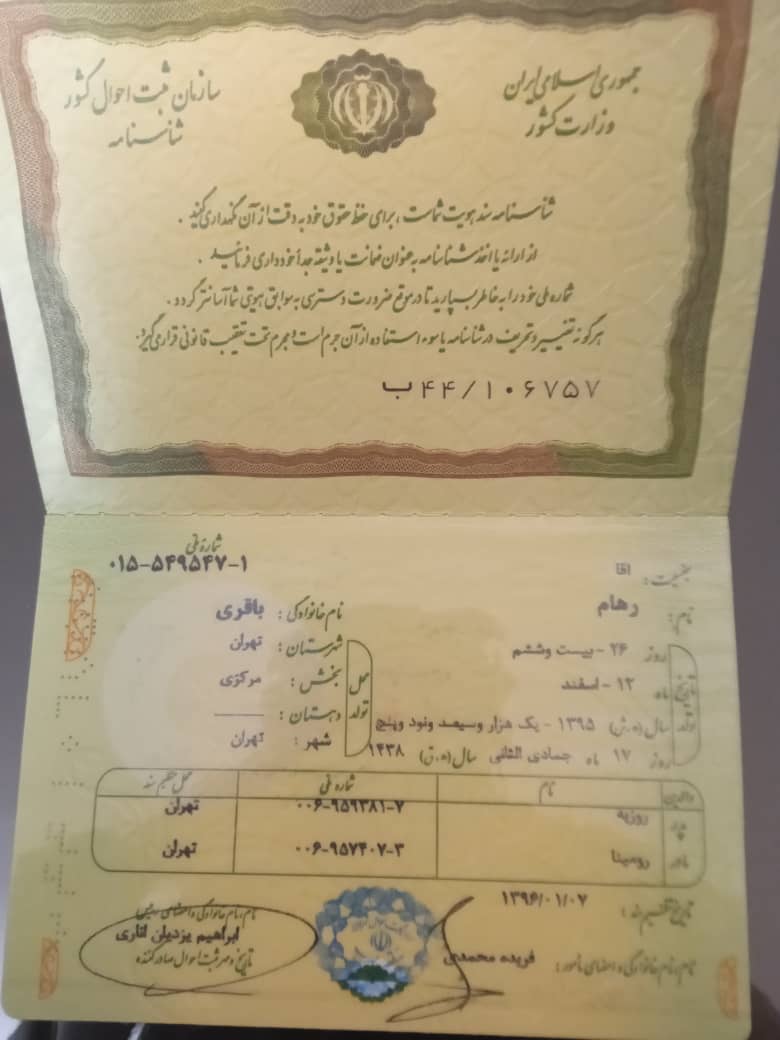 جمهوری اسلامی ایران
وزارت کشور
سازمان ثبت احوال کشور
شناسنامه
شناسنامه سند هویت شماست ، برای حفظ حقوق خود به دقت از آن نگهداری کنید .
از ارائه یا اخذ شناسنامه به عنوان ضمانت یا وثیقه جداً خودداری فرمائید .
شماره ملی خود را به خاطر بسپارید تا در موقع ضرورت دسترسی به سوابق هویتی شما آسانتر گردد .
هرگونه تغییر و تحریف در شناسنامه یا سوء استفاده از آن جرم است و مجرم تحت تعقیب قانونی قرار می گیرد .
ب۴۴/۱۰۶۷۵۷
شماره ملی
۰۱۵-۵۴۹۵۴۷-۱
جنسیت : آقا
نام : رهام
نام خانوادگی : باقری
تاریخ تولد
روز ۲۶ - بیست وششم
ماه ۱۲ - اسفند
سال (ه.ش) ۱۳۹۵ - یک هزار وسیصد ونود وپنج
روز ۱۷ ماه جمادی الثانی سال (ه.ق) ۱۴۳۸
محل تولد
شهرستان : تهران
بخش : مرکزی
دهستان :
شهر : تهران
والدین نام شماره ملی محل تنظیم سند
پدر روزبه ۰۰۶-۹۵۹۳۸۱-۷ تهران
مادر رومینا ۰۰۶-۹۵۷۴۰۷-۳ تهران
تاریخ تنظیم سند : ۱۳۹۶/۰۱/۰۷
نام ، نام خانوادگی و امضای مأمور : فریده محمدی
نام ، نام خانوادگی و امضای رئیس
ابراهیم یزدیان اناری
تاریخ و مهر ثبت احوال صادر کننده